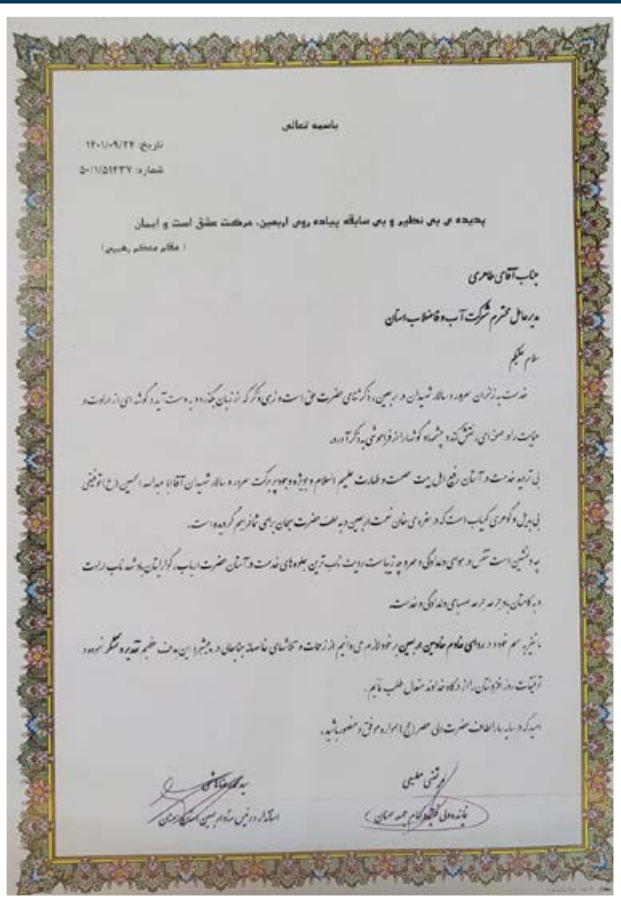 باسمه تعالی
تاریخ: ۱۴۰۱/۰۹/۲۴
شماره: ۵۰/۱/۵۱۴۳۷
پدیده ی بی نظیر و بی سابقه پیاده روی اربعین، حرکت عشق است و ایمان
( مقام معظم رهبری )
جناب آقای طاهری
مدیرعامل محترم شرکت آب و فاضلاب استان
سلام علیکم
خدمت به زائران سرور و سالار شهیدان در اربعین، ذکر ثنای حضرت حق است و زهی ذکر که از زبان بگذرد و به دست آید و گوشه ای از ارادت و
حمایت را در صحنه ای، نقش کند و چشمها و گوشها را از فراموشی به ذکر آورد.
بی تردید خدمت در آستان رفیع اهل بیت عصمت و طهارت علیهم السلام و بویژه وجود پر برکت سرور و سالار شهیدان آقا ابا عبدالله الحسین (ع) توفیقی
بی بدیل و گوهری کمیاب است که در سفره ی خان نعمت اربعین و به لطف حضرت سبحان برای شما فراهم گردیده است.
چه دلنشین است تنفس در هوای دلدادگی و چه زیباست رویت ناب ترین جلوه های خدمت در آستان حضرت ارباب، گوارایتان باد شهد ناب ارادت
و به کامتان باد جرعه جرعه صهبای دلدادگی و خدمت.
ما نیز به سهم خود و در ردای خادم خادمین اربعین بر خود لازم می دانیم از زحمات و تلاشهای خالصانه جنابعالی در پیشبرد این هدف عظیم تقدیر و تشکر نموده و
توفیقات روز افزونتان را از درگاه خداوند متعال طلب نمائیم.
امید که در سایه سار الطاف حضرت ولی عصر (عج) همواره موفق و منصور باشید.
مرتضی مطیعی
نماینده ولی فقیه و امام جمعه سمنان
سید محمدرضا هاشمی
استاندار و رئیس ستاد اربعین استان سمنان